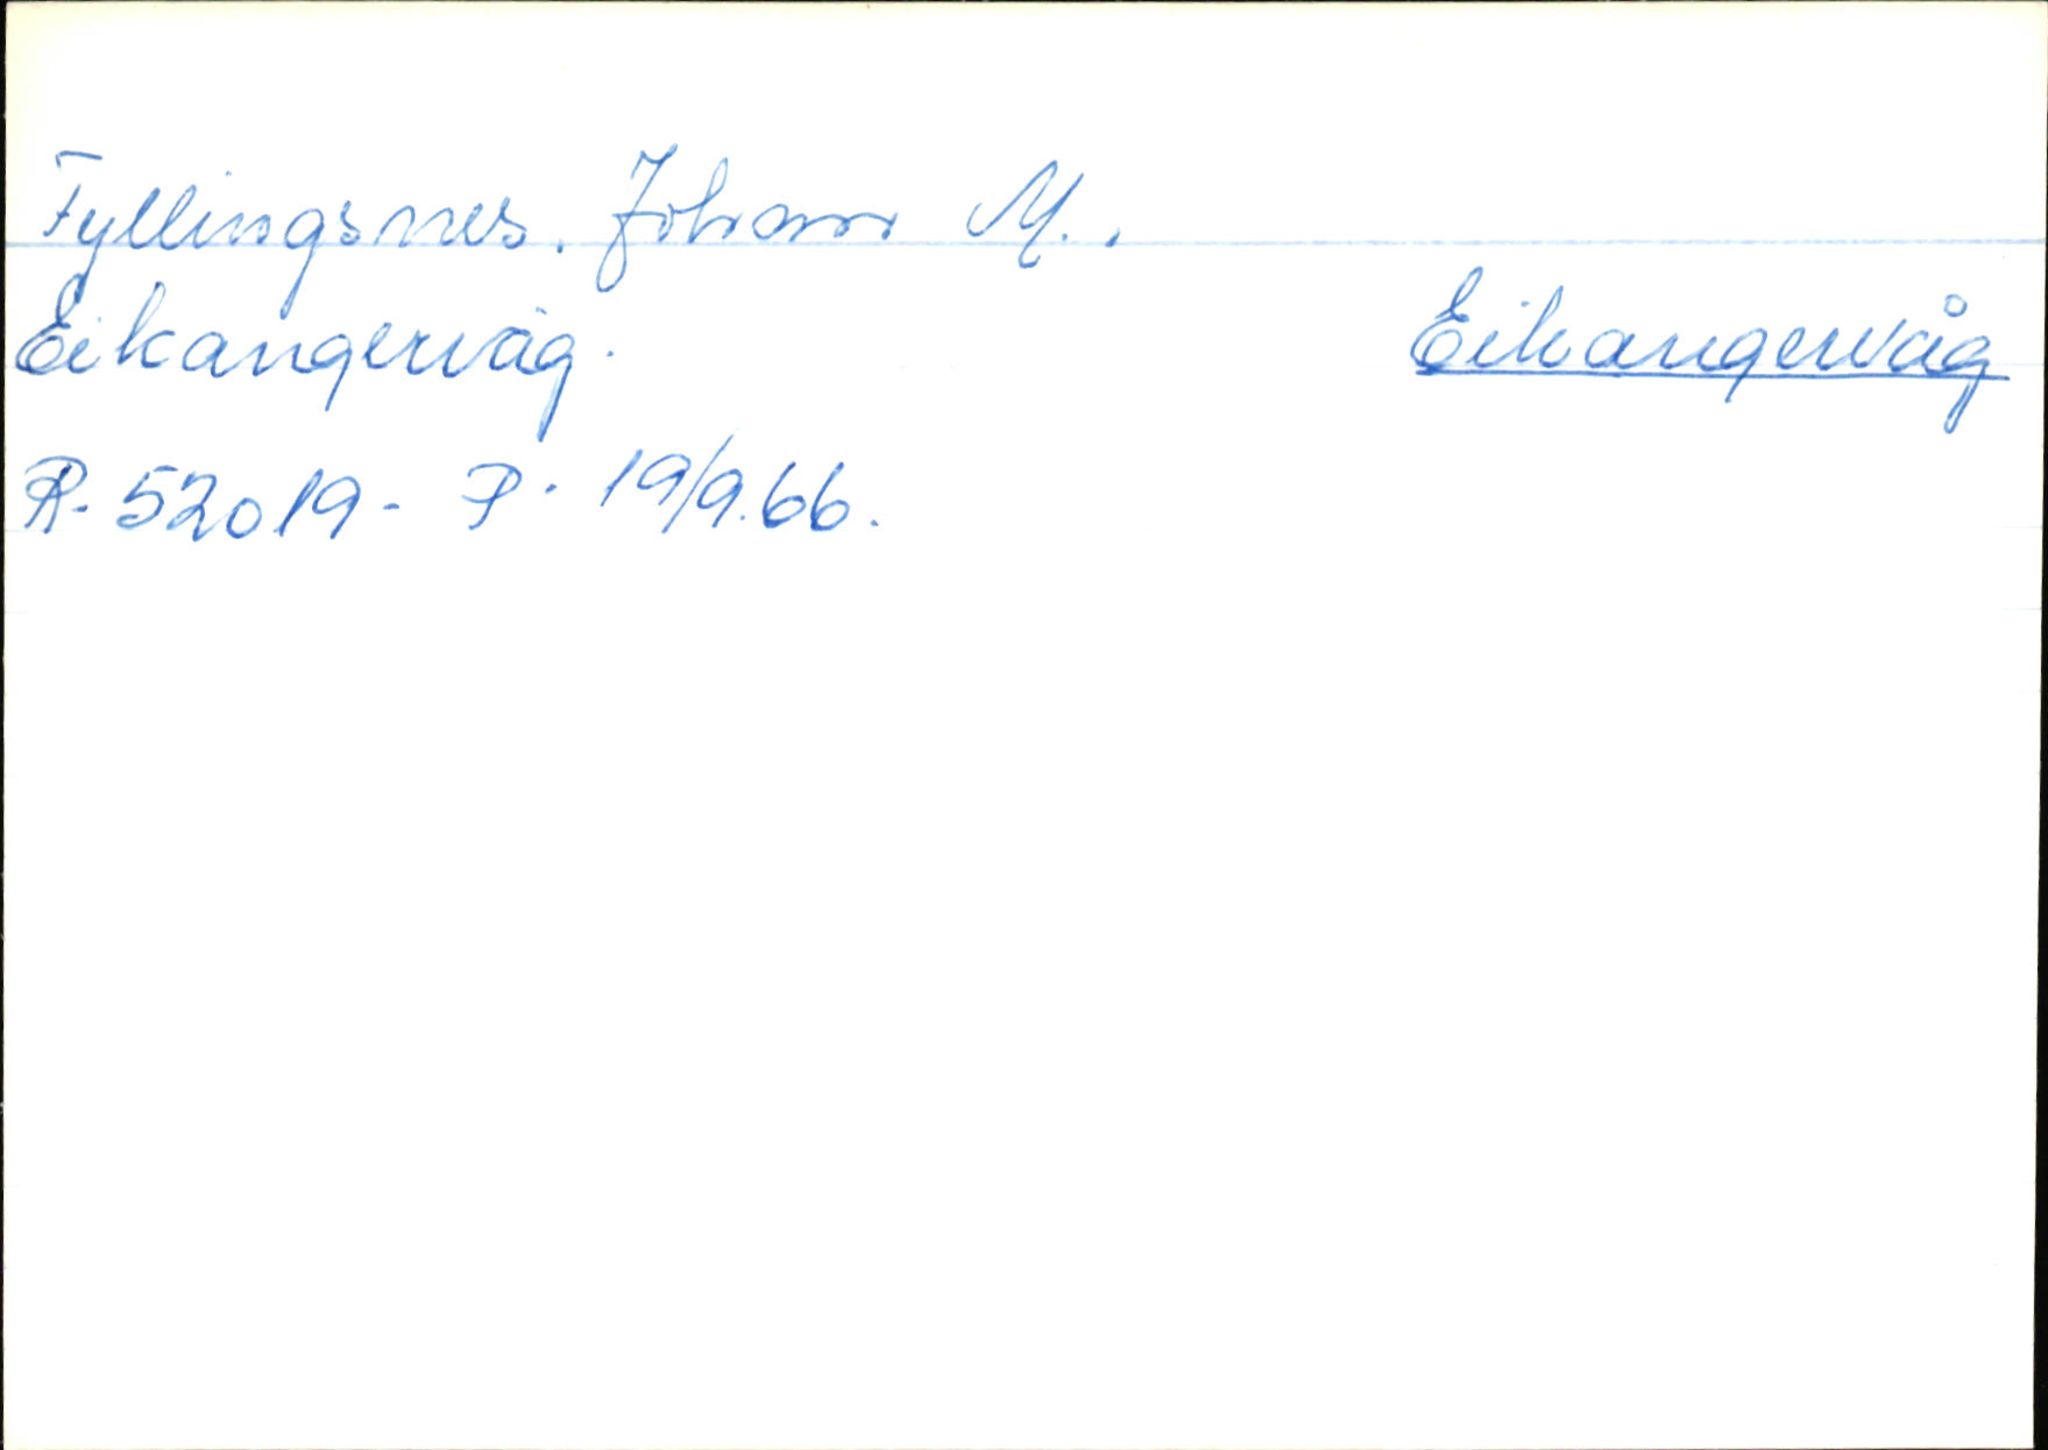 Fyllingsnes. Johann M..
Eikangervåg.
Eikangervåg
R. 52019 - P. 19/9.66.